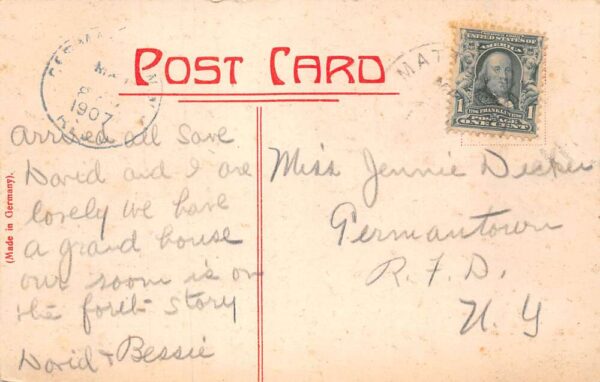 POST CARD
GERMA
MA
1907
MAT
UNITED STATES OF
AMERICA
1 FRANKLIN
POSTAGE
ONE CENT
1
(Made in Germany).
Arrived all Save
David and I are
lovely We have
a grand house
our room is on
the forth Story
David + Bessie
Miss Jennie Decker
Germantown
R. F. D.
N. Y